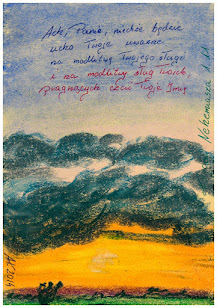 Ach, Panie, niechże będzie
ucho Twoje uważne
na modlitwę Twojego sługi
i na modlitwy sług Twoich
pragnących czcić Twoje Imię
Nehemiasza 1.11